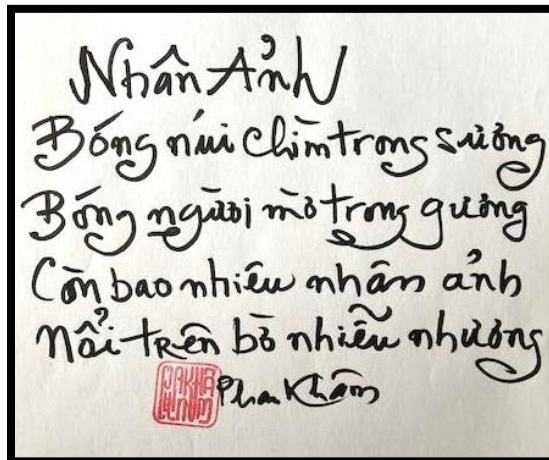 Nhân Ảnh
Bóng núi chìm trong sương
Bóng người mờ trong gương
Còn bao nhiêu nhân ảnh
Nổi trên bờ nhiễu nhương
Phan Khâm